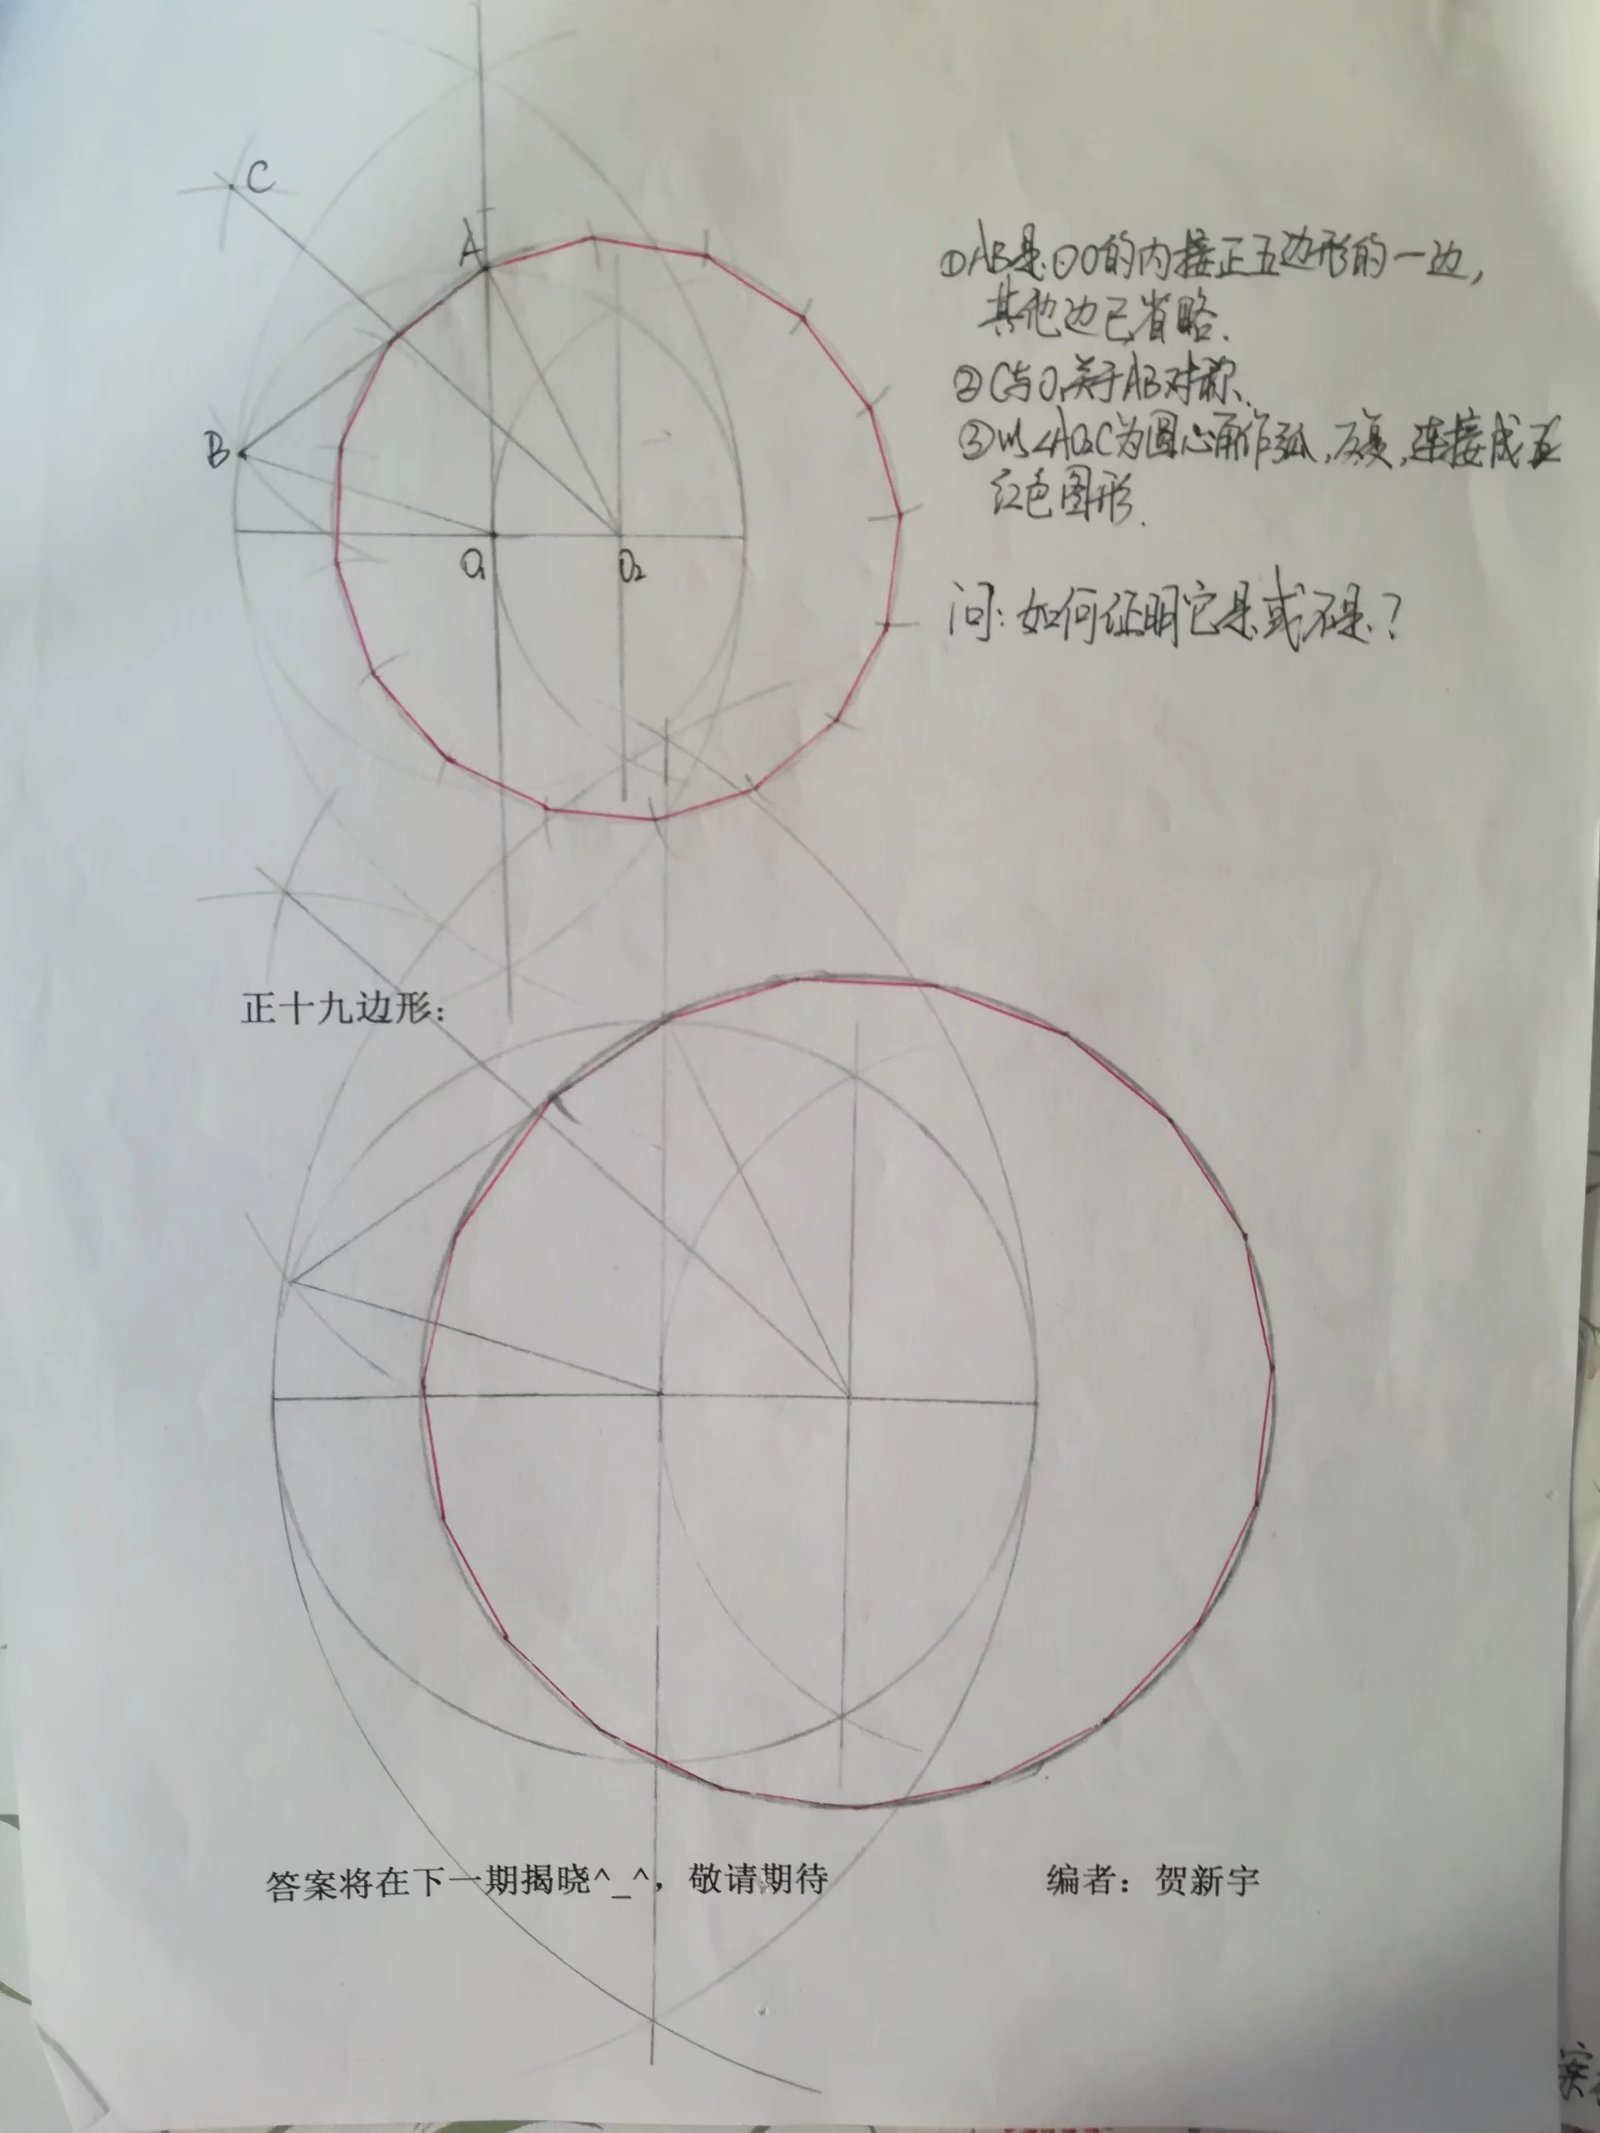 C
A
B
O₁
O₂
①AB是⊙O的内接正五边形的一边,
其他边已省略.
②C与O₁关于AB对称.
③以∠AO₂C为圆心角作弧,反复,连接成
红色图形.
问:如何证明它是或不是?
正十九边形:
答案将在下一期揭晓^_^,敬请期待
编者:贺新宇